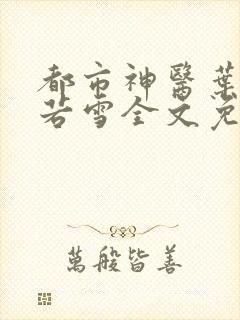 都市神醫葉
若雪全文免
萬般皆善